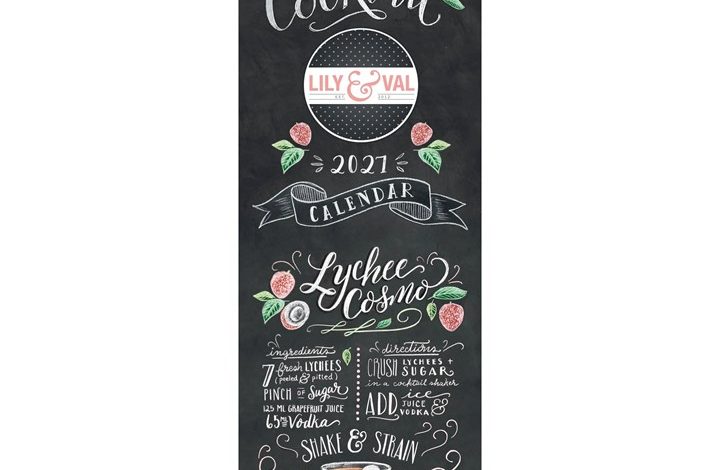 Cocktail
LILY & VAL
EST. 2012
2021
CALENDAR
Lychee
Cosmo
ingredients
7 fresh LYCHEES
(peeled & pitted)
PINCH OF Sugar
125 ML GRAPEFRUIT JUICE
65ML Vodka
directions
CRUSH LYCHEES +
SUGAR
in a cocktail shaker
ADD ice
JUICE &
VODKA
SHAKE & STRAIN